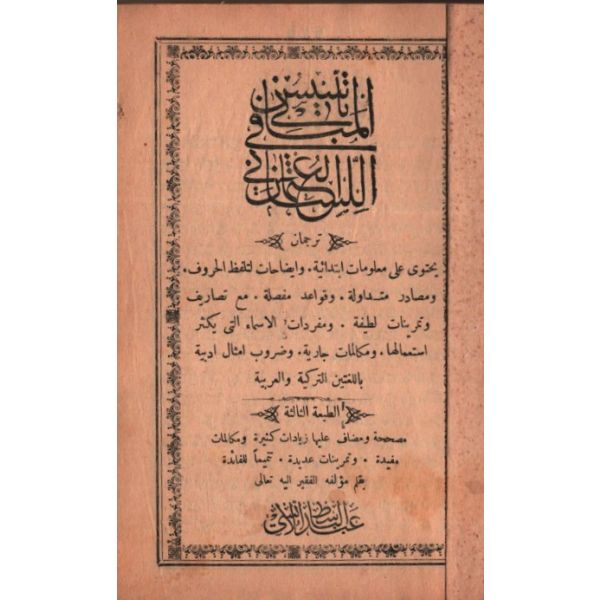 تأنيس المباني في
اللسان العثماني
ترجمان
يحتوى على معلومات ابتدائية. وايضاحات لتلفظ الحروف.
ومصادر متداولة. وقواعد مفصلة. مع تصاريف
وتمرينات لطيفة. ومفردات الاسماء التى يكثر
استعمالها. ومكالمات جارية. وضروب امثال ادبية
باللغتين التركية والعربية
الطبعة الثالثة
مصححة ومضاف عليها زيادات كثيرة ومكالمات
مفيدة. وتمرينات عديدة. تتميماً للفائدة
بقلم مؤلفه الفقير اليه تعالى
عبد الباسط الانسي